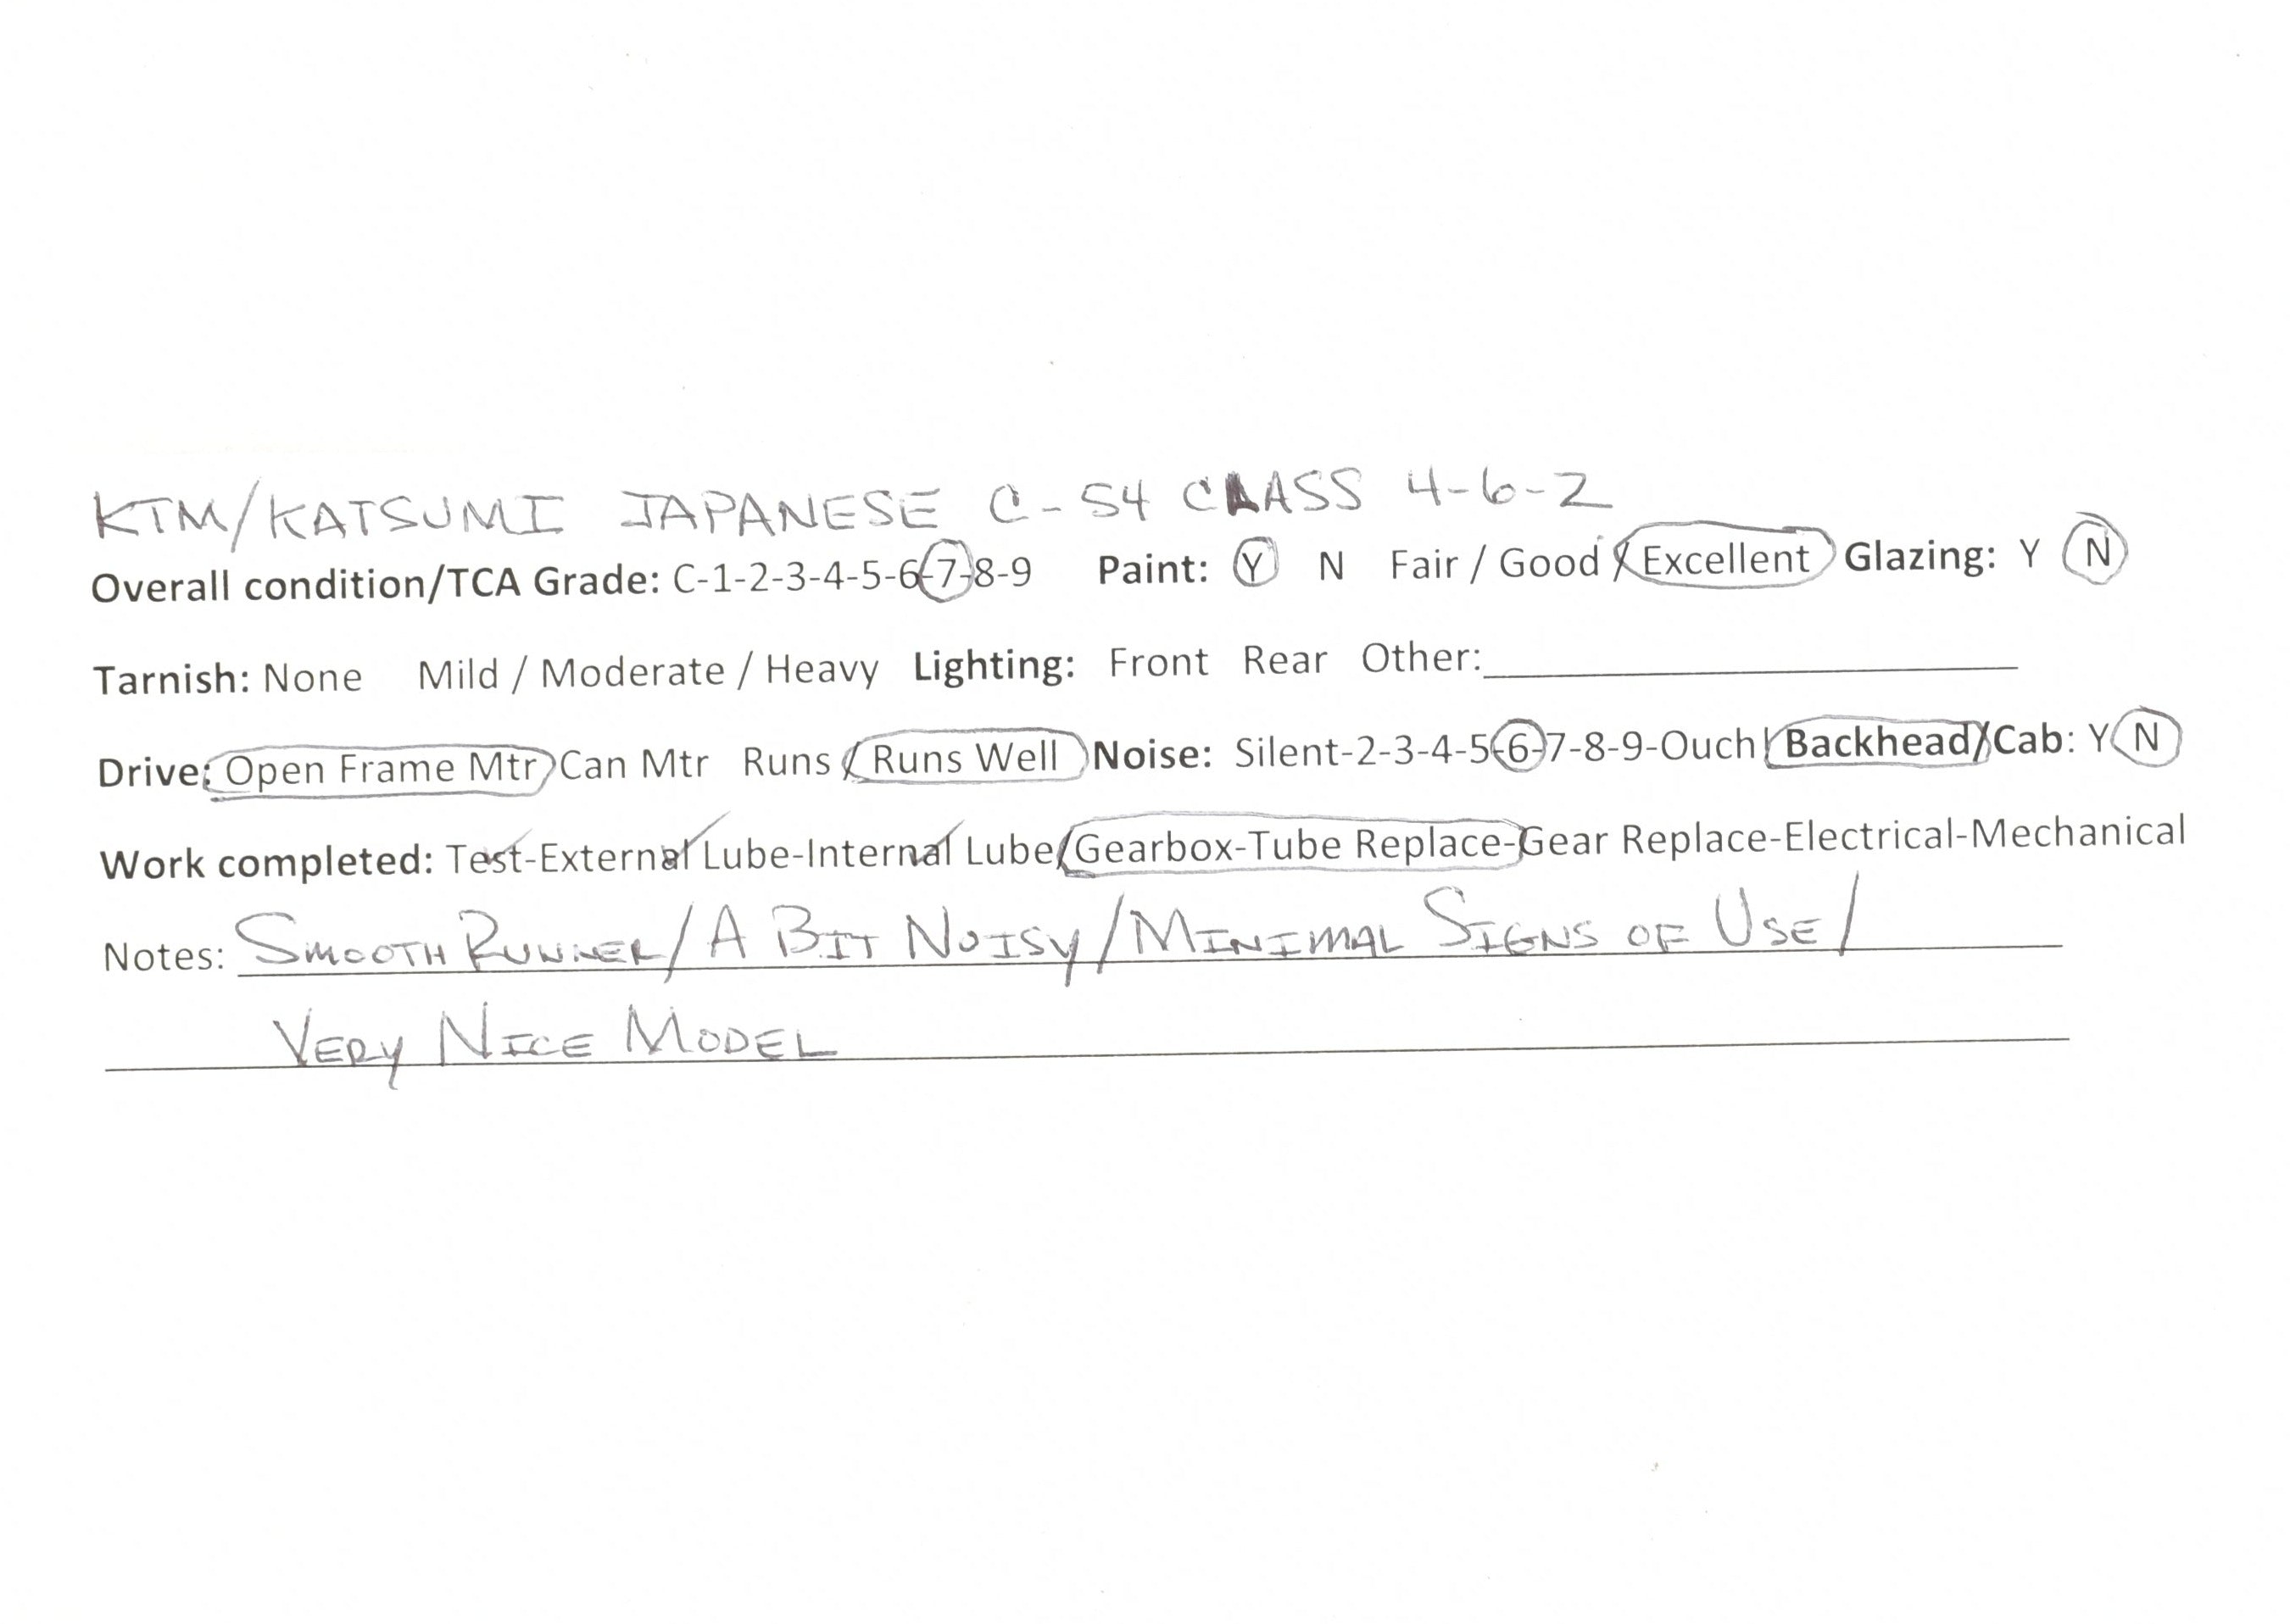 KTM/KATSUMI JAPANESE C-54 CLASS 4-6-2
Overall condition/TCA Grade: C-1-2-3-4-5-6-7-8-9 Paint: Y N Fair / Good / Excellent Glazing: Y N
Tarnish: None Mild / Moderate / Heavy Lighting: Front Rear Other:
Drive: Open Frame Mtr Can Mtr Runs / Runs Well Noise: Silent-2-3-4-5-6-7-8-9-Ouch Backhead/Cab: Y N
Work completed: Test-External Lube-Internal Lube/Gearbox-Tube Replace-Gear Replace-Electrical-Mechanical
Notes: SMOOTH RUNNER/A BIT NOISY/MINIMAL SIGNS OF USE/
VERY NICE MODEL